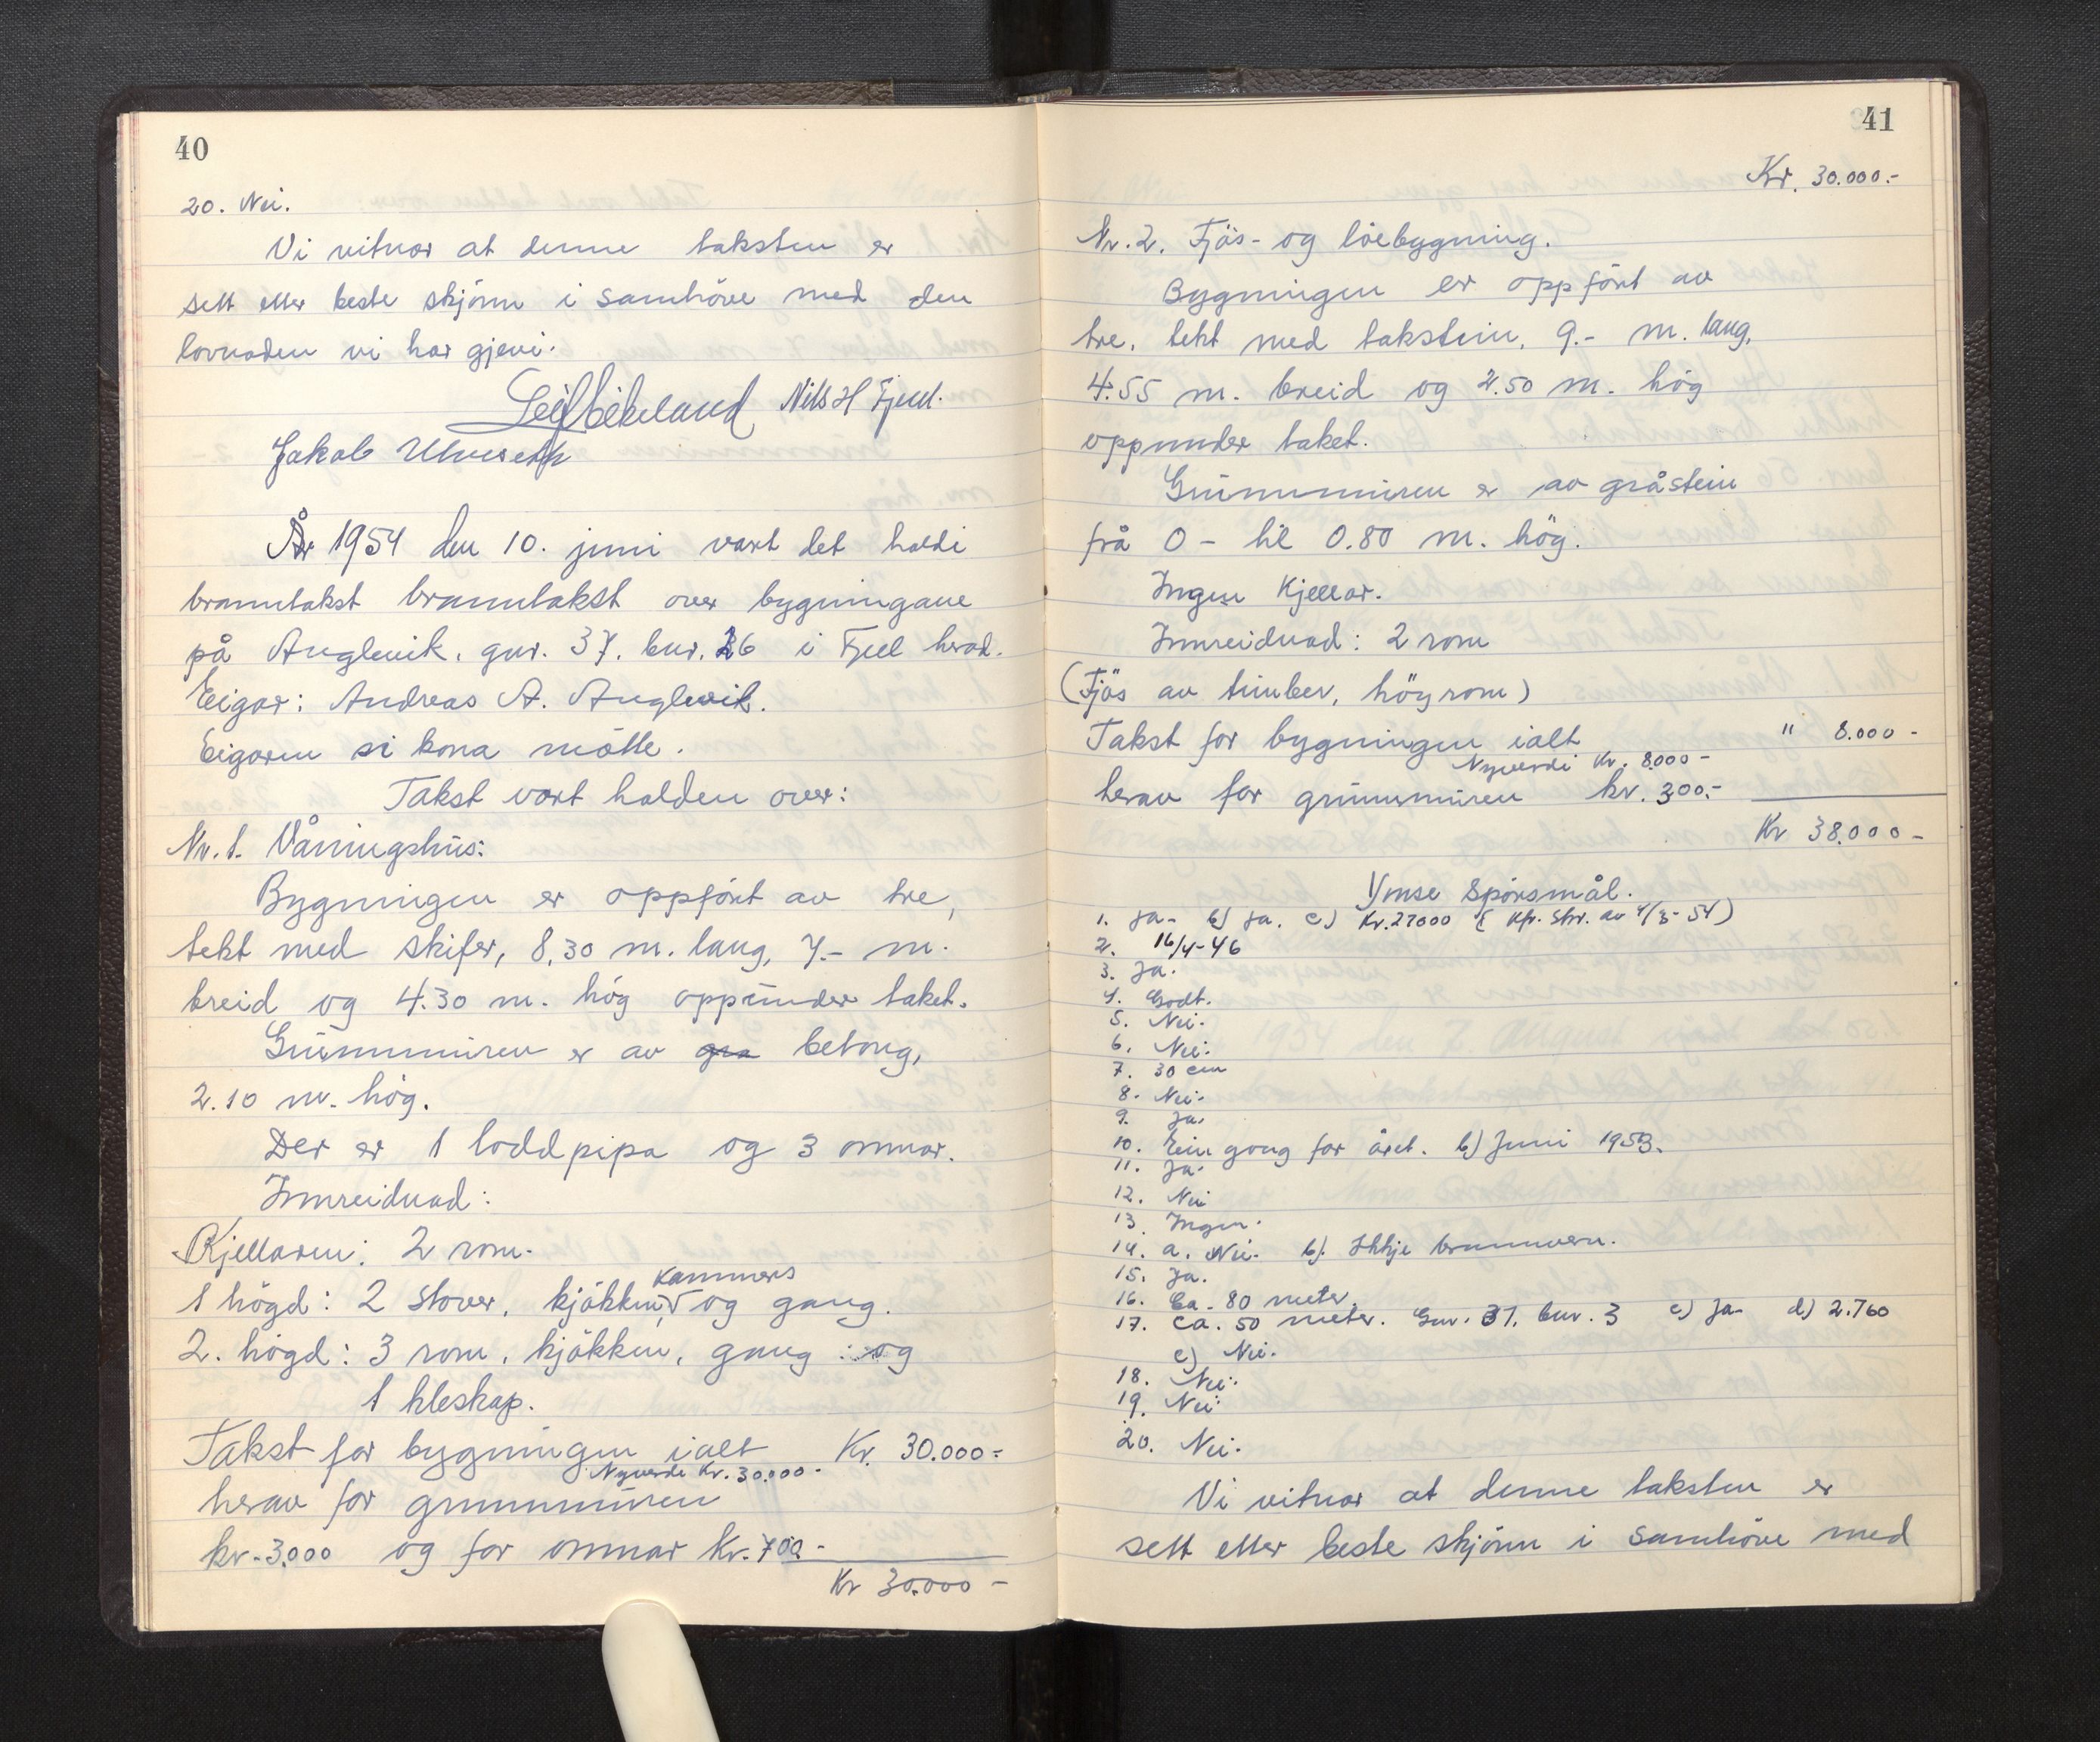 40
20. Nei.
Vi vitnar at denne taksten er
sett etter beste skjönn i samhöve med den
lovnaden vi har gjevi.
Leif Ekeland Nils H Fjell.
Jakob Ulveseth
År 1954 den 10. juni vart det haldi
branntakst branntakst over bygningane
på Anglevik, gnr. 37. bnr. 26 i Fjell herad.
Eigar: Andreas A. Anglevik.
Eigaren si kona mötte.
Takst vart halden over:
Nr. 1. Våningshus:
Bygningen er oppfört av tre,
tekt med skifer, 8,30 m. lang, 7.- m.
breid og 4.30 m. hög oppunder taket.
Grunnmuren er av gra betong,
2.10 m. hög.
Der er 1 loddpipa og 3 omnar.
Innreidnad:
Kjellaren: 2 rom.
kammers
1 högd: 2 stover, kjökken, og gang.
2. högd: 3 rom, kjökken, gang og
1 kleskap.
Takst for bygningen ialt Kr. 30.000-
Nyverde Kr. 30.000-
herav for grunnmuren
kr. 3.000 og for omnar Kr. 700-
Kr 30.000 -
41
Kr. 30.000.-
Nr. 2. Fjös- og löebygning.
Bygningen er oppfört av
tre, tekt med takstein, 9.- m. lang,
4.55 m. breid og 2.50 m. hög
oppunder taket.
Grunnmuren er av gråstein
frå 0 - til 0.80 m. hög.
Ingen Kjellar.
Innreidnad: 2 rom
(Fjös av timber, höyrom)
Takst for bygningen ialt " 8.000 -
Nyverdi Kr. 8.000 -
herav for grunnmuren kr. 300.-
Kr 38.000 -
Ymse Spörsmål.
1. Ja- b) Ja. c) Kr. 27000 ( Kfr. Skr. av 4/3-54)
2. 16/4-46
3. Ja.
4. Godt.
5. Nei.
6. Nei.
7. 30 cm
8. Nei.
9. Ja.
10. Ein gong for året. b) Juni 1953.
11. Ja.
12. Nei
13. Ingen.
14. a. Nei. b). Ikkje brannvern.
15. Ja.
16. Ca. 80 meter.
17. Ca. 50 meter. Gnr. 37. bnr. 3 c) Ja- d) 2.760
e) Nei.
18. Nei.
19. Nei.
20. Nei.
Vi vitnar at denne taksten er
sett etter beste skjönn i samhöve med